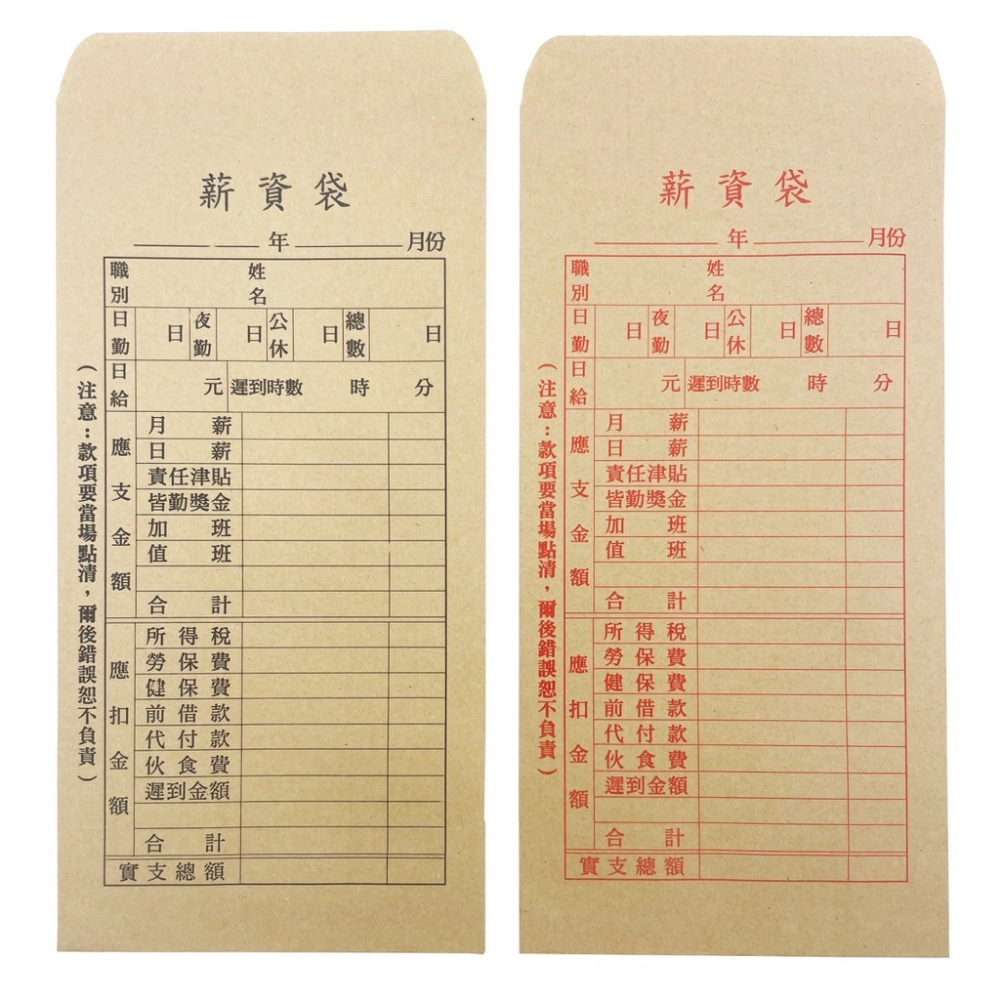 薪資袋
年 月份
職別 姓名
日勤 日 夜勤 日 公休 日 總數 日
日給 元 遲到時數 時 分
應支金額
月薪
日薪
責任津貼
皆勤獎金
加班
值班
合計
應扣金額
所得稅
勞保費
健保費
前借款
代付款
伙食費
遲到金額
合計
實支總額
(注意:款項要當場點清,爾後錯誤恕不負責)
薪資袋
年 月份
職別 姓名
日勤 日 夜勤 日 公休 日 總數 日
日給 元 遲到時數 時 分
應支金額
月薪
日薪
責任津貼
皆勤獎金
加班
值班
合計
應扣金額
所得稅
勞保費
健保費
前借款
代付款
伙食費
遲到金額
合計
實支總額
(注意:款項要當場點清,爾後錯誤恕不負責)